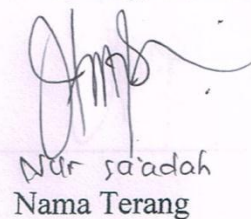 Nur sa'adah
Nama Terang